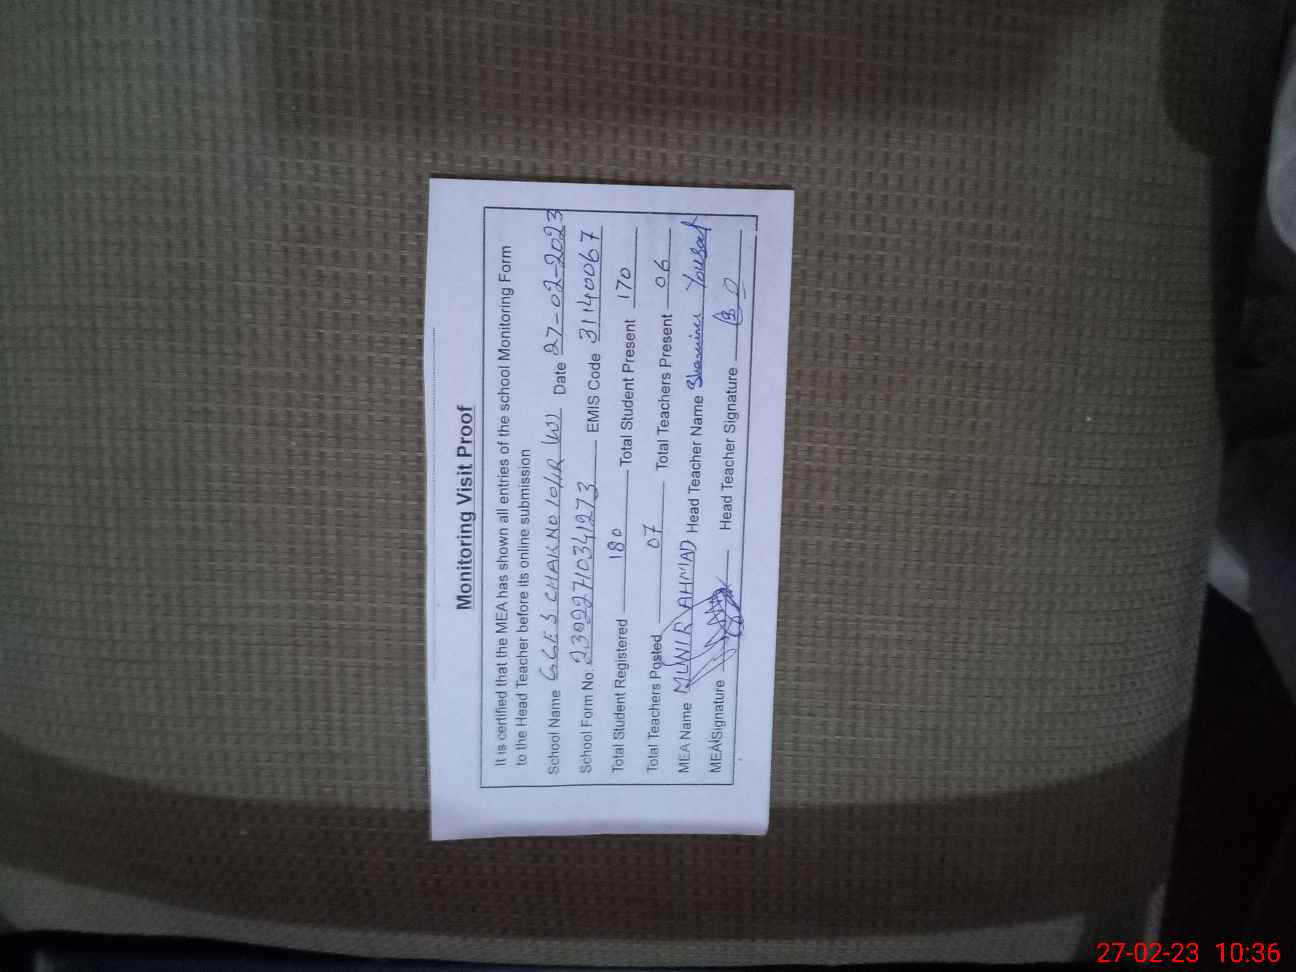 Monitoring Visit Proof
It is certified that the MEA has shown all entries of the school Monitoring Form
to the Head Teacher before its online submission
School Name GGES CHAK NO 10/1R (W) Date 27-02-2023
School Form No: 23022710341273 EMIS Code 31140067
Total Student Registered 180 Total Student Present 170
Total Teachers Posted 07 Total Teachers Present 06
MEA Name MUNIR AHMAD Head Teacher Name Yousaf
MEA Signature Head Teacher Signature
27-02-23 10:36